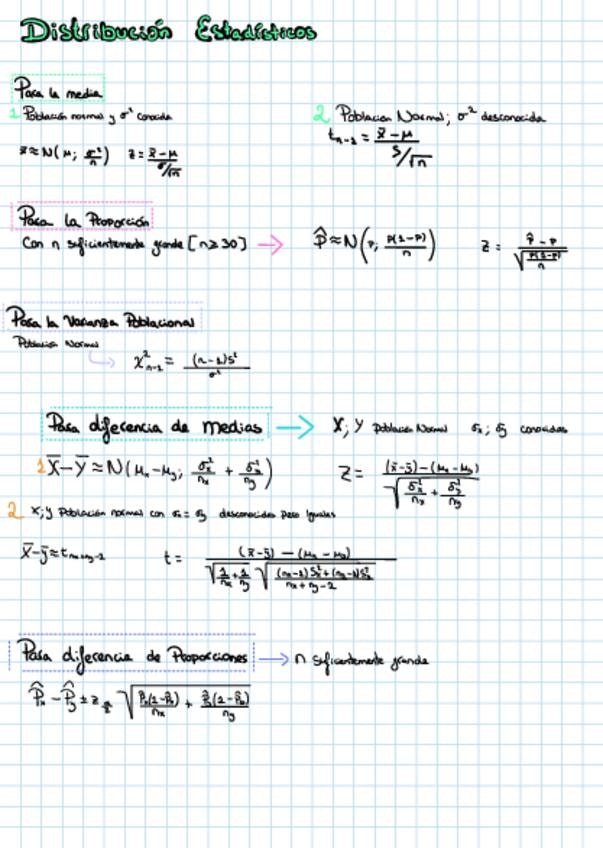 Distribución Estadísticos
Para la media
1 Población normal y σ² conocida
x̄ ≈ N(μ; σ²/n) z = (x̄ - μ)/(σ/√n)
2 Población Normal; σ² desconocida
t_{n-1} = (x̄ - μ)/(S/√n)
Para la Proporción
Con n suficientemente grande [n ≥ 30] → P̂ ≈ N(P; P(1-P)/n) z = (P̂ - P)/√(P(1-P)/n)
Para la Varianza Poblacional
Población Normal
χ²_{n-1} = (n-1)S²/σ²
Para diferencia de medias → X; Y Población Normal σx; σy conocidas
1 X̄ - Ȳ ≈ N(μx - μy; σx²/nx + σy²/ny) Z = ((x̄ - ȳ) - (μx - μy))/√(σx²/nx + σy²/ny)
2 X; Y Población normal con σx = σy desconocidas pero iguales
X̄ - ȳ ≈ t_{nx+ny-2} t = ((x̄ - ȳ) - (μx - μy))/(√(1/nx + 1/ny) √(((nx-1)Sx² + (ny-1)Sy²)/(nx + ny - 2)))
Para diferencia de Proporciones → n suficientemente grande
P̂x - P̂y ± z_{α/2} √(P̂x(1-P̂x)/nx + P̂y(1-P̂y)/ny)